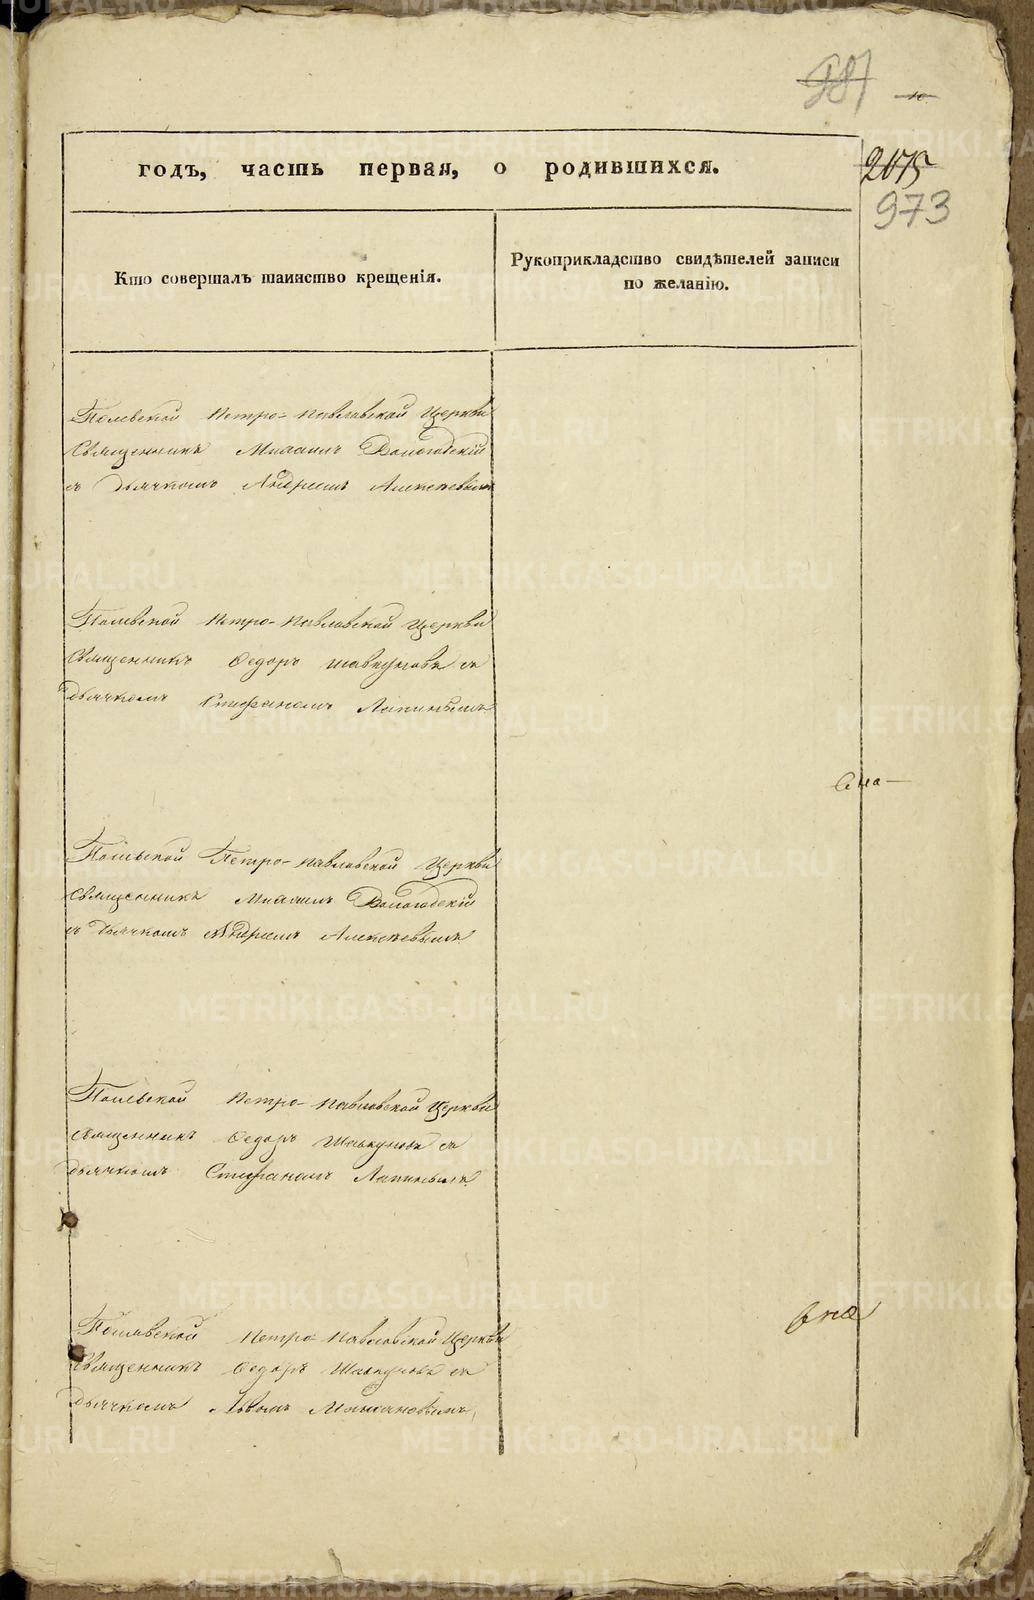 987
2015
973
годъ, часть первая, о родившихся.
Кто совершалъ таинство крещенія.
Рукоприкладство свидѣтелей записи
по желанію.
Полевской Петро-павловской Церкви
Священникъ Михаилъ Вологодскій
съ Дьячкомъ Андреемъ Алексеевымъ
Полевской Петро-павловской Церкви
Священникъ Федоръ Шавкуновъ съ
Дьячкомъ Стефаномъ Лапинымъ
Полевской Петро-павловской Церкви
Священникъ Михаилъ Вологодскій
съ Дьячкомъ Андреемъ Алексеевымъ
Полевской Петро-павловской Церкви
священникъ Федоръ Шавкуновъ съ
Дьячкомъ Стефаномъ Лапинымъ
Полевской Петро-павловской Церкви
Священникъ Федоръ Шавкуновъ съ
Дьячкомъ Львомъ
METRIKI.GASO-URAL.RU